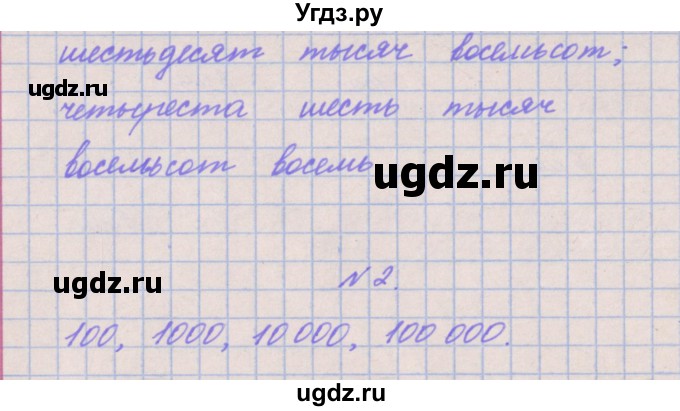 Угдз.ру
шестьдесят тысяч восемьсот;
ugdz.ru
четыреста шесть тысяч
восемьсот восемь
ugdz.ru
№2.
ugdz.ru
100, 1000, 10 000, 100 000.
ugdz.ru